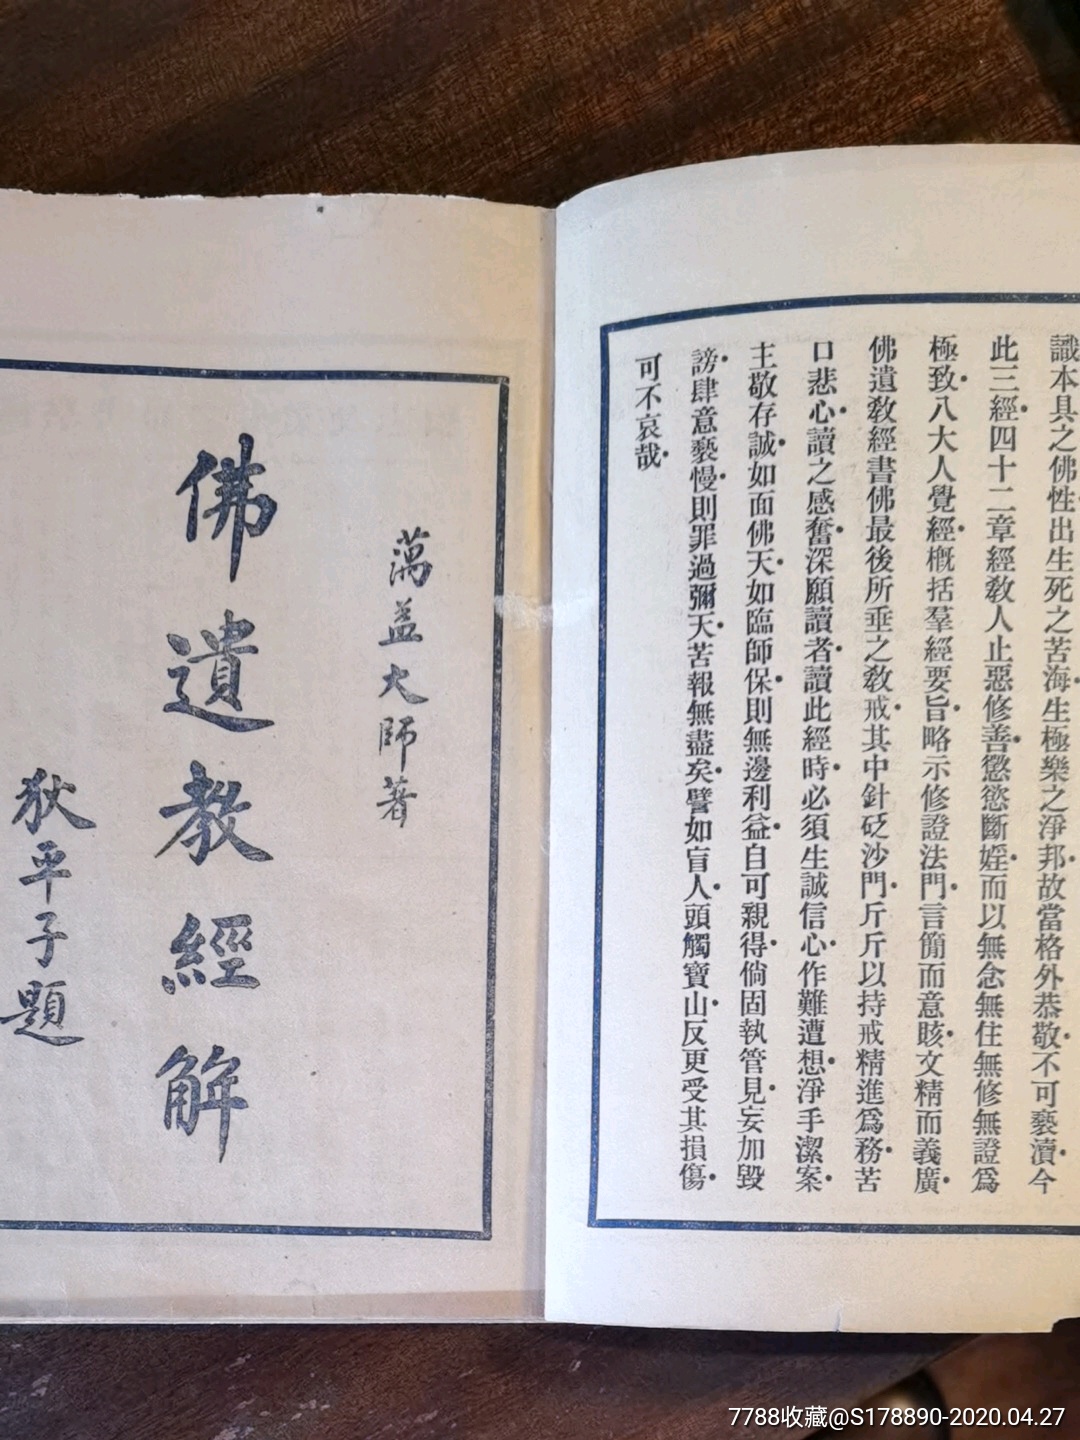 識本具之佛性出生死之苦海生極樂之淨邦故當格外恭敬不可褻瀆今
此三經四十二章經敎人止惡修善懲慾斷婬而以無念無住無修無證爲
極致八大人覺經概括羣經要旨略示修證法門言簡而意賅文精而義廣
佛遺敎經書佛最後所垂之敎戒其中針砭沙門斤斤以持戒精進爲務苦
口悲心讀之感奮深願讀者讀此經時必須生誠信心作難遭想淨手潔案
主敬存誠如面佛天如臨師保則無邊利益自可親得倘固執管見妄加毀
謗肆意褻慢則罪過彌天苦報無盡矣譬如盲人頭觸寶山反更受其損傷
可不哀哉
蕅益大師著
佛遺教經解
狄平子題
7788收藏@S178890-2020.04.27